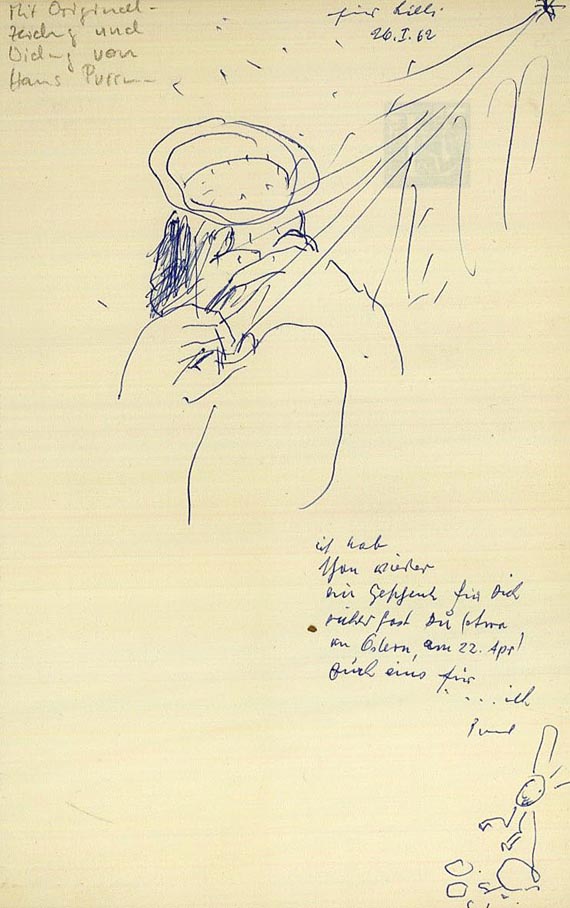 Mit Original-
zeichng und
Widmg von
Hans Purrmann
für Lilli
26.I.62
ich hab
schon wieder
ein Geschenk für Dich
hast Du etwa
an Ostern, am 22. Apr
auch eins für
....ich